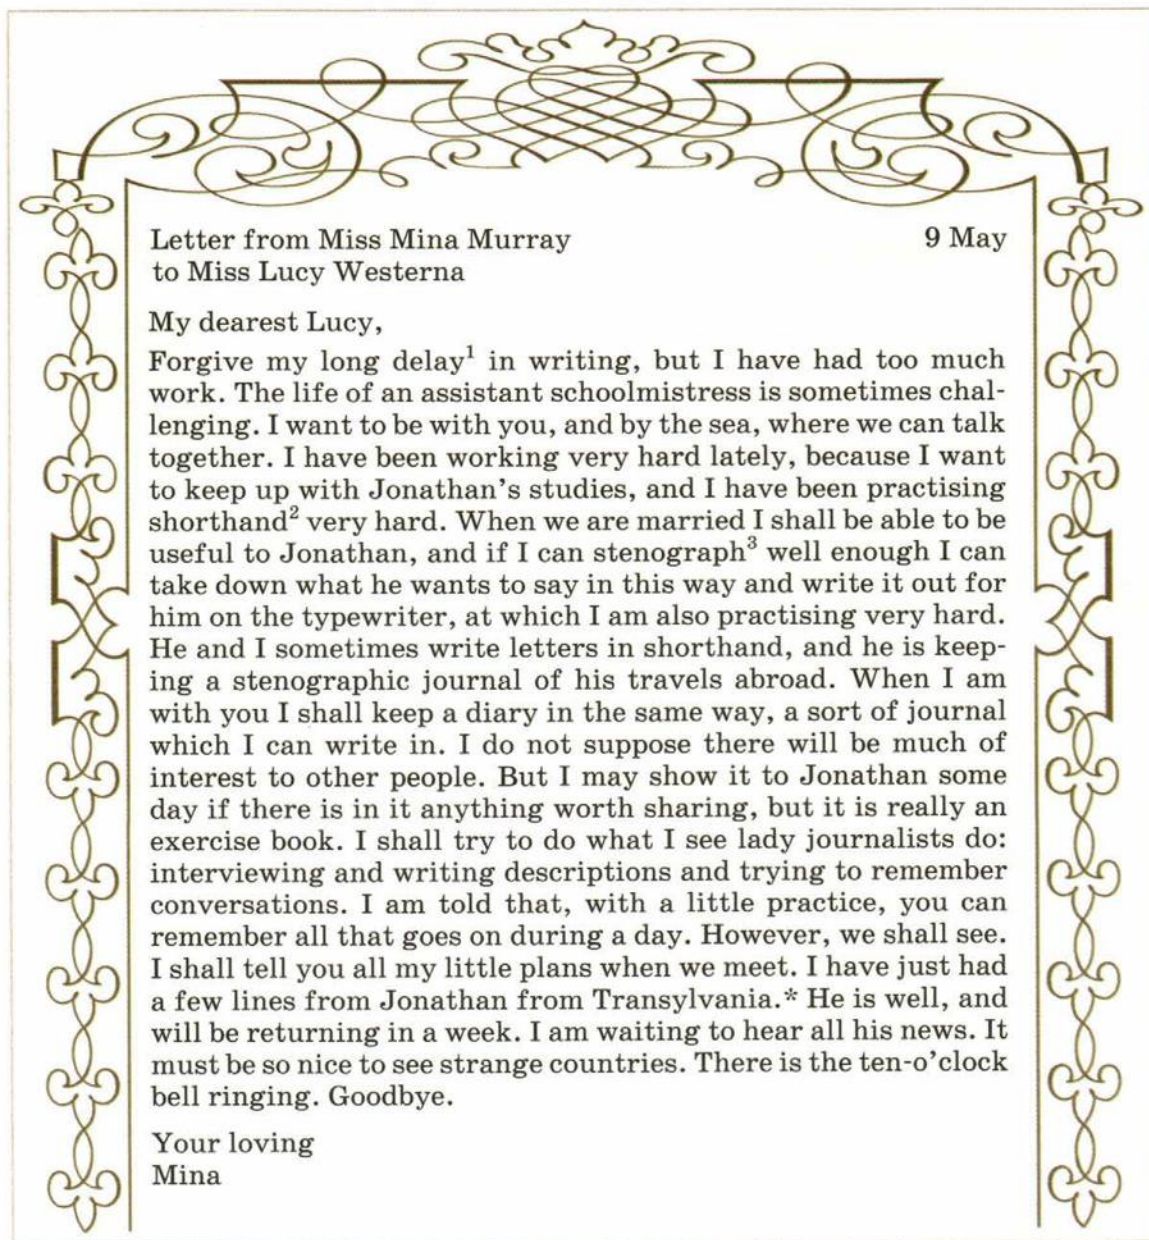 Letter from Miss Mina Murray 9 May
to Miss Lucy Westerna
My dearest Lucy,
Forgive my long delay¹ in writing, but I have had too much
work. The life of an assistant schoolmistress is sometimes chal-
lenging. I want to be with you, and by the sea, where we can talk
together. I have been working very hard lately, because I want
to keep up with Jonathan's studies, and I have been practising
shorthand² very hard. When we are married I shall be able to be
useful to Jonathan, and if I can stenograph³ well enough I can
take down what he wants to say in this way and write it out for
him on the typewriter, at which I am also practising very hard.
He and I sometimes write letters in shorthand, and he is keep-
ing a stenographic journal of his travels abroad. When I am
with you I shall keep a diary in the same way, a sort of journal
which I can write in. I do not suppose there will be much of
interest to other people. But I may show it to Jonathan some
day if there is in it anything worth sharing, but it is really an
exercise book. I shall try to do what I see lady journalists do:
interviewing and writing descriptions and trying to remember
conversations. I am told that, with a little practice, you can
remember all that goes on during a day. However, we shall see.
I shall tell you all my little plans when we meet. I have just had
a few lines from Jonathan from Transylvania.* He is well, and
will be returning in a week. I am waiting to hear all his news. It
must be so nice to see strange countries. There is the ten-o'clock
bell ringing. Goodbye.
Your loving
Mina